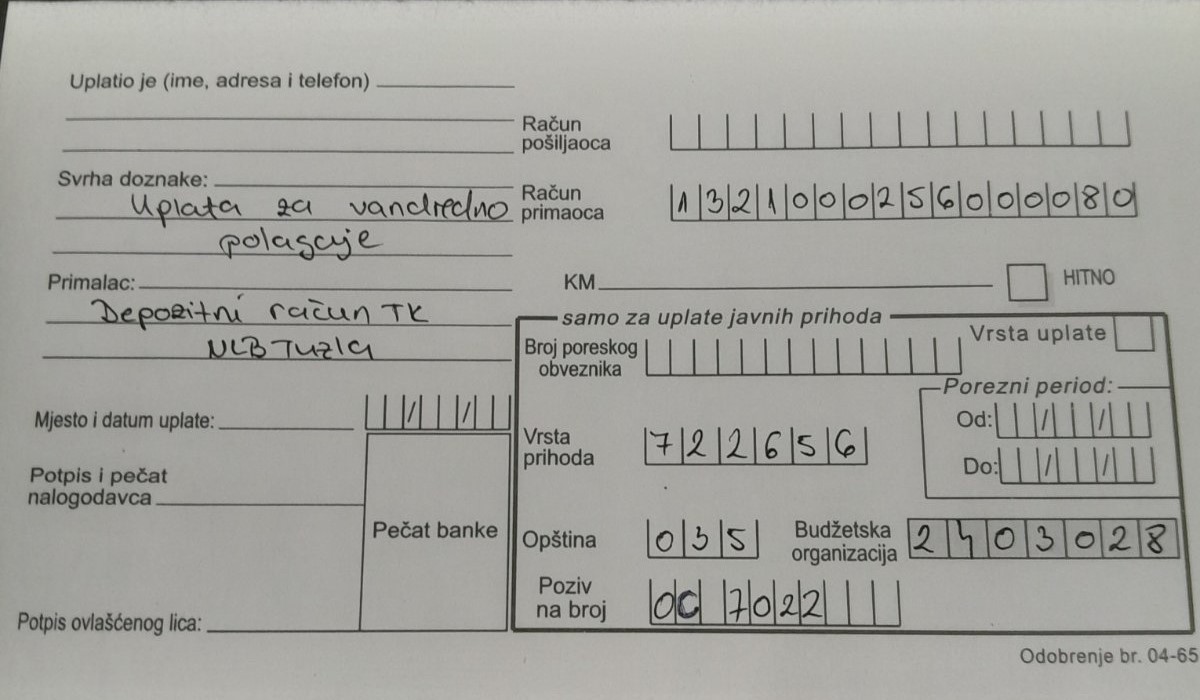 Uplatio je (ime, adresa i telefon)
Račun
pošiljaoca
Svrha doznake:
Uplata za vandredno
polagaje
Račun
primaoca
1321000256000080
Primalac:
Depozitni račun TK
NLB Tuzla
KM
HITNO
samo za uplate javnih prihoda
Vrsta uplate
Broj poreskog
obveznika
Porezni period:
Od: / /
Do: / /
Mjesto i datum uplate: / /
Vrsta
prihoda
722656
Potpis i pečat
nalogodavca
Pečat banke
Opština
035
Budžetska
organizacija
2403028
Poziv
na broj
OC 7022
Potpis ovlašćenog lica:
Odobrenje br. 04-65